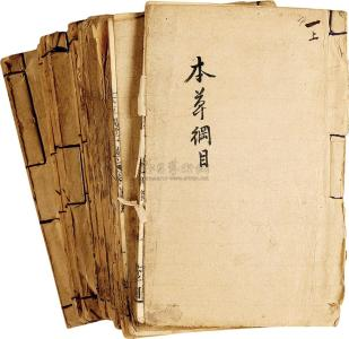 一上
本草綱目